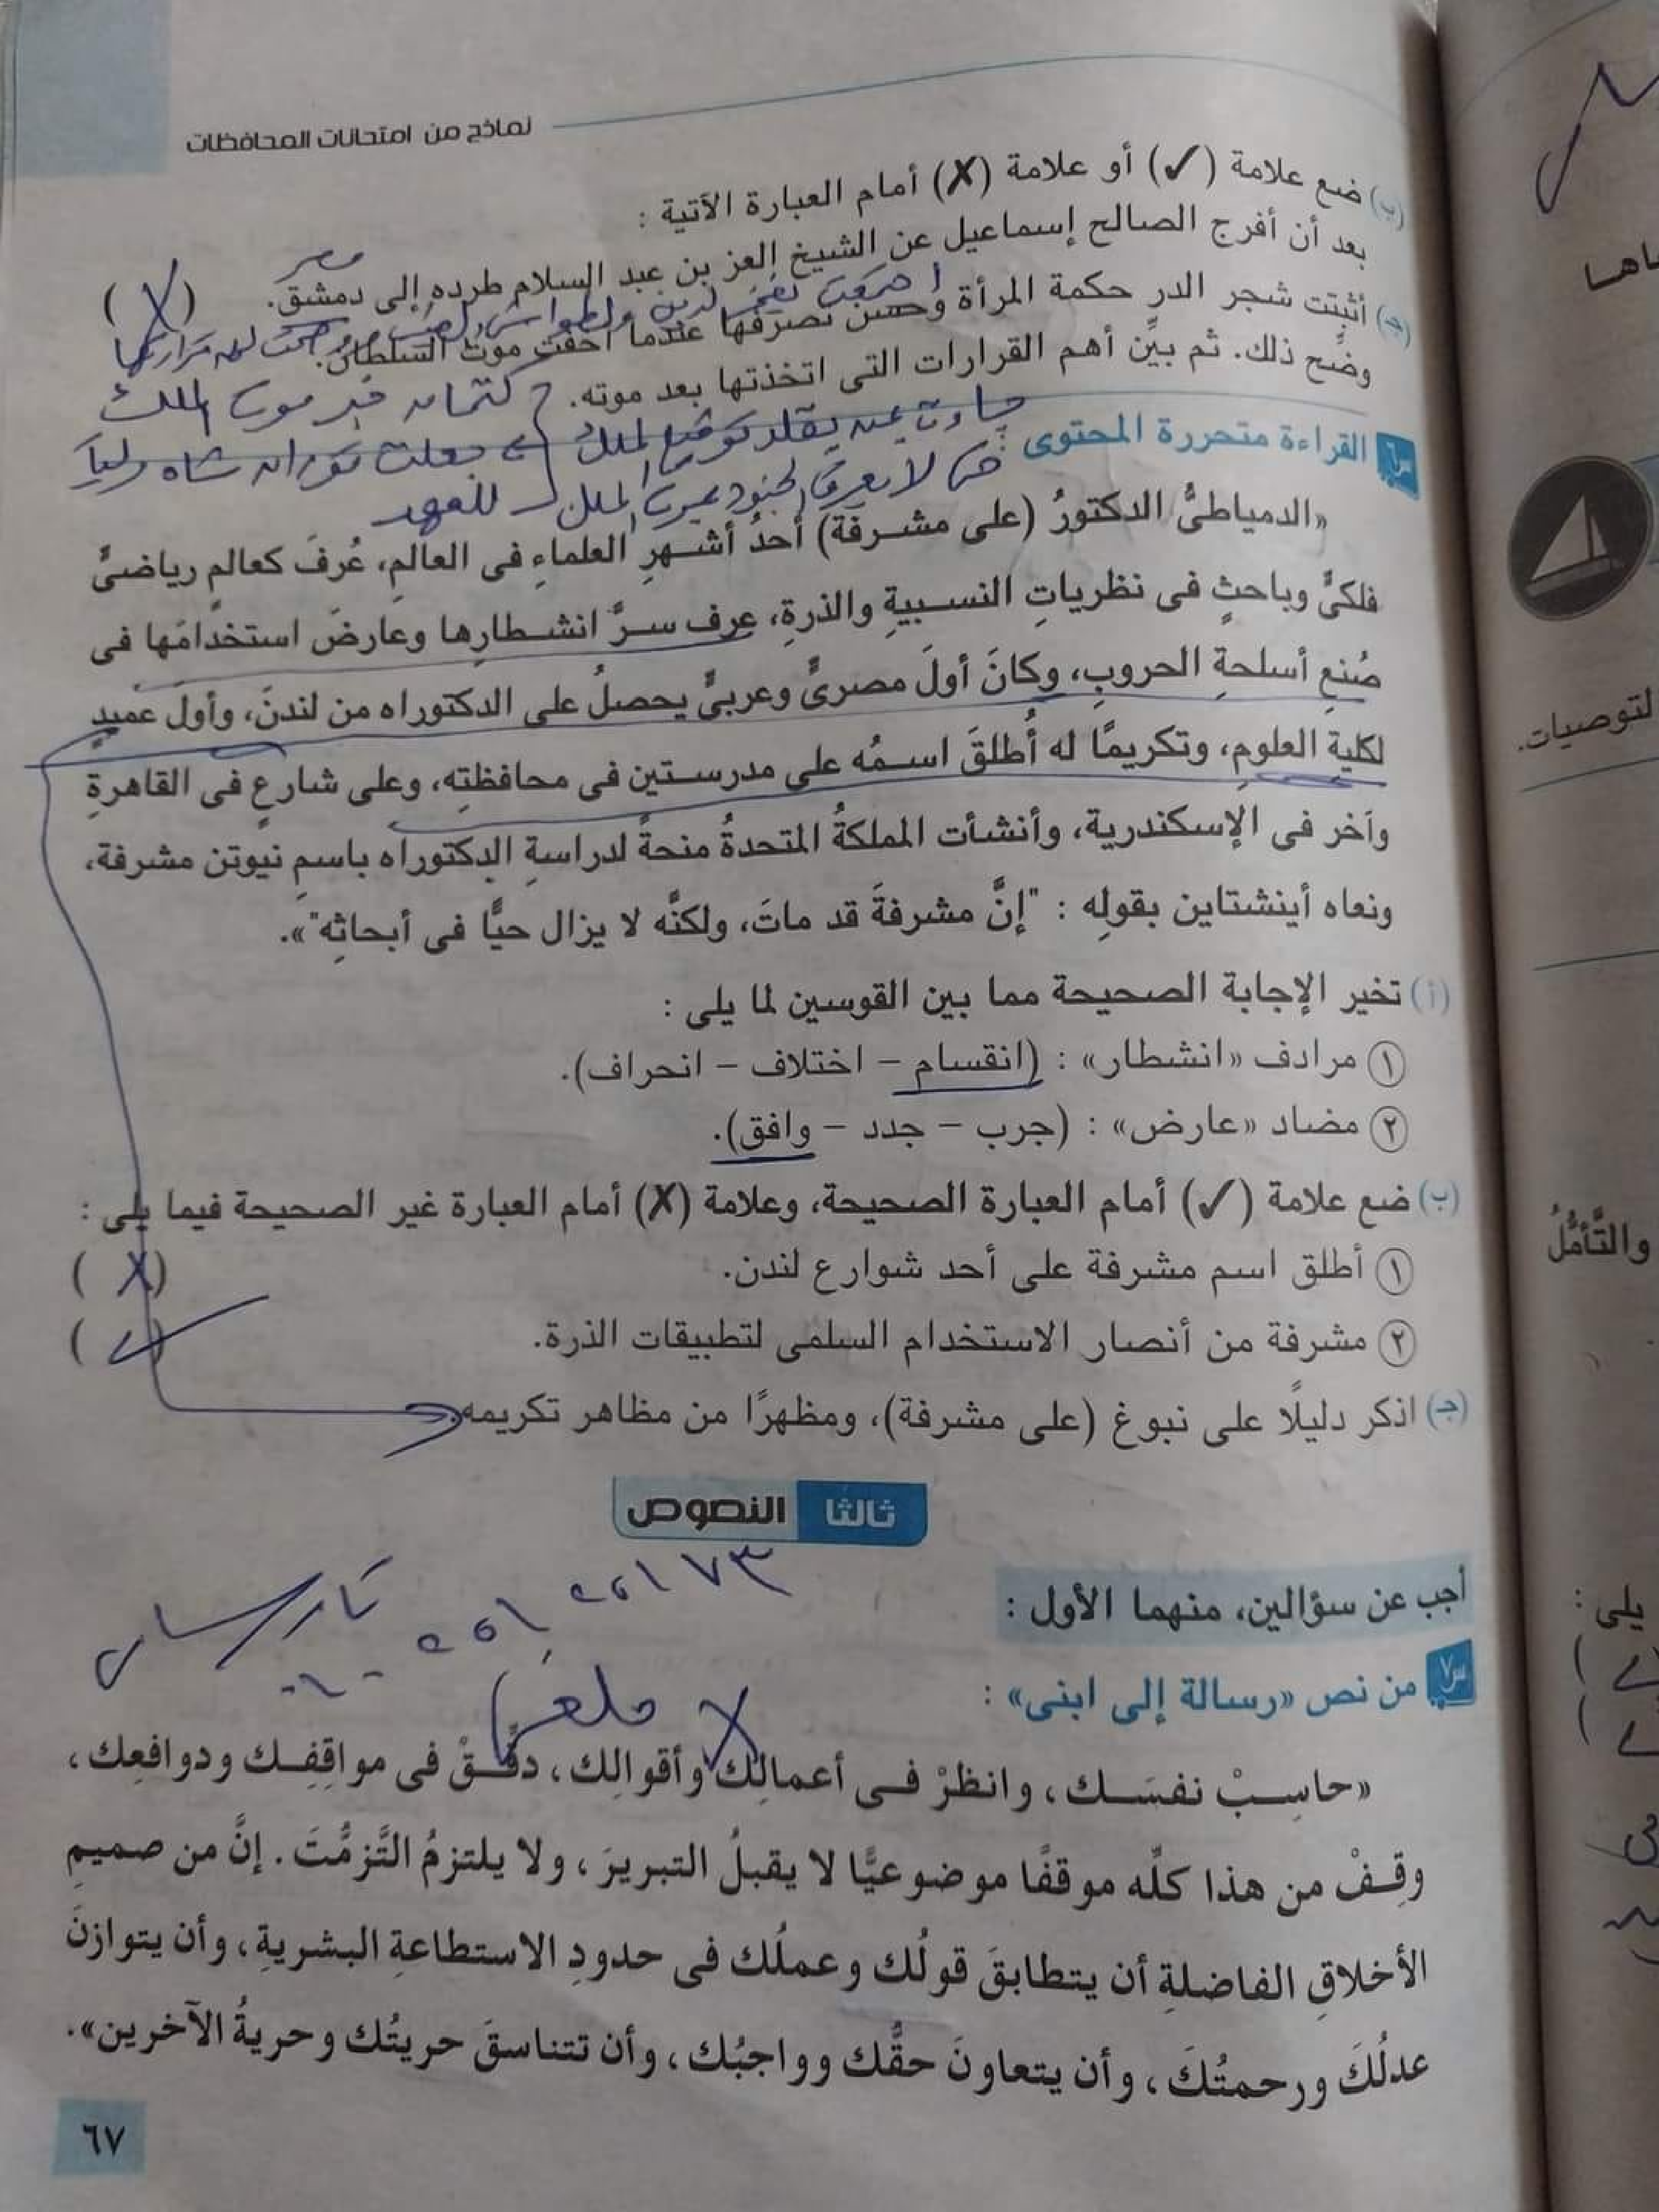 نماذج من امتحانات المحافظات
(ب) ضع علامة (✓) أو علامة (✗) أمام العبارة الآتية :
بعد أن أفرج الصالح إسماعيل عن الشيخ العز بن عبد السلام طرده إلى دمشق. (X)
مصر
(جـ) أثبتت شجر الدر حكمة المرأة وحسن تصرفها عندما أخفت موت السلطان.
وضِّح ذلك. ثم بيِّن أهم القرارات التى اتخذتها بعد موته.
كتمان خبر موت الملك
جعلت توران شاه ولياً
للعهد
س٦ القراءة متحررة المحتوى :
«الدمياطىُّ الدكتورُ (على مشرفة) أحدُ أشهرِ العلماءِ فى العالمِ، عُرفَ كعالمٍ رياضىٍّ
فلكىٍّ وباحثٍ فى نظرياتِ النسبيةِ والذرةِ، عرف سرَّ انشطارِها وعارضَ استخدامَها فى
صُنعِ أسلحةِ الحروبِ، وكانَ أولَ مصرىٍّ وعربىٍّ يحصلُ على الدكتوراه من لندنَ، وأولَ عميدٍ
لكليةِ العلومِ، وتكريمًا له أُطلقَ اسمُه على مدرستين فى محافظتِه، وعلى شارعٍ فى القاهرةِ
وآخر فى الإسكندرية، وأنشأت المملكةُ المتحدةُ منحةً لدراسةِ الدكتوراه باسمِ نيوتن مشرفة،
ونعاه أينشتاين بقولِه : "إنَّ مشرفةَ قد ماتَ، ولكنَّه لا يزال حيًّا فى أبحاثِه"».
(أ) تخير الإجابة الصحيحة مما بين القوسين لما يلى :
١ مرادف «انشطار» : (انقسام – اختلاف – انحراف).
٢ مضاد «عارض» : (جرب – جدد – وافق).
(ب) ضع علامة (✓) أمام العبارة الصحيحة، وعلامة (✗) أمام العبارة غير الصحيحة فيما يلى :
١ أطلق اسم مشرفة على أحد شوارع لندن. (X)
٢ مشرفة من أنصار الاستخدام السلمى لتطبيقات الذرة. (✓)
(جـ) اذكر دليلًا على نبوغ (على مشرفة)، ومظهرًا من مظاهر تكريمه.
ثالثا النصوص
أجب عن سؤالين، منهما الأول :
س٧ من نص «رسالة إلى ابنى» :
«حاسِبْ نفسَك، وانظرْ فى أعمالِك وأقوالِك، دقِّقْ فى مواقِفِك ودوافعِك،
وقِفْ من هذا كلِّه موقفًا موضوعيًّا لا يقبلُ التبريرَ، ولا يلتزمُ التَّزمُّتَ. إنَّ من صميمِ
الأخلاقِ الفاضلةِ أن يتطابقَ قولُك وعملُك فى حدودِ الاستطاعةِ البشريةِ، وأن يتوازنَ
عدلُكَ ورحمتُكَ، وأن يتعاونَ حقُّك وواجبُك، وأن تتناسقَ حريتُك وحريةُ الآخرين».
٦٧
لتوصيات.
والتَّأمُّلُ
يلى :